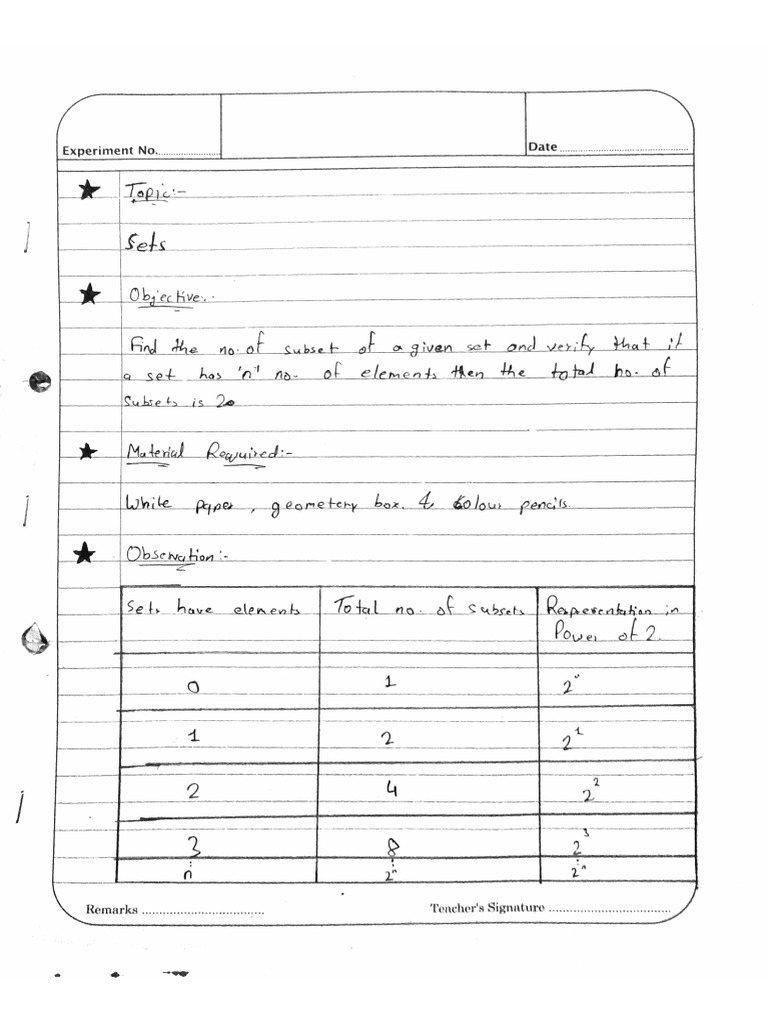 Experiment No.....................
Date .......................................
★ Topic:-
Sets
★ Objective:-
Find the no. of subset of a given set and verify that if
a set has 'n' no. of elements then the total no. of
subsets is 2n
★ Material Required:-
White paper, geometery box. & colour pencils.
★ Observation:-
Sets have elements Total no. of subsets Respersentation in
Power of 2.
0 1 2⁰
1 2 2¹
2 4 2²
3 8 2³
⋮ ⋮ ⋮
n 2ⁿ 2ⁿ
Remarks ..................................... Teacher's Signature .....................................